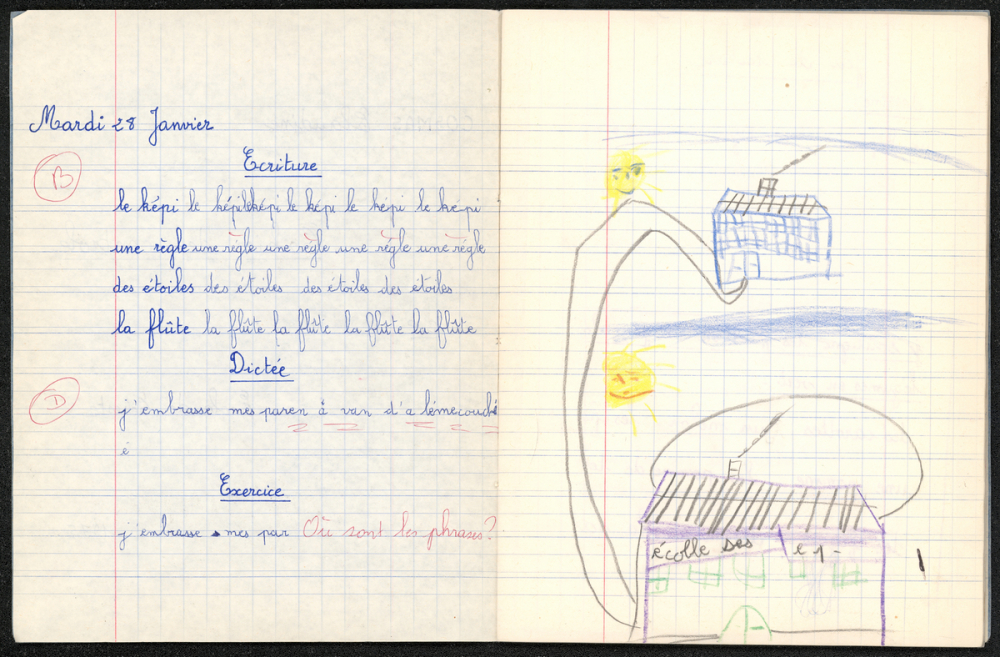 Mardi 28 Janvier
Ecriture
B
le képi le képi le képi le képi le képi le képi
une règle une règle une règle une règle une règle
des étoiles des étoiles des étoiles des étoiles
la flûte la flûte la flûte la flûte la flûte
Dictée
D
j'embrasse mes paren à van d'a lémecouché
é
Exercice
j'embrasse mes par Où sont les phrases?
écolle ses